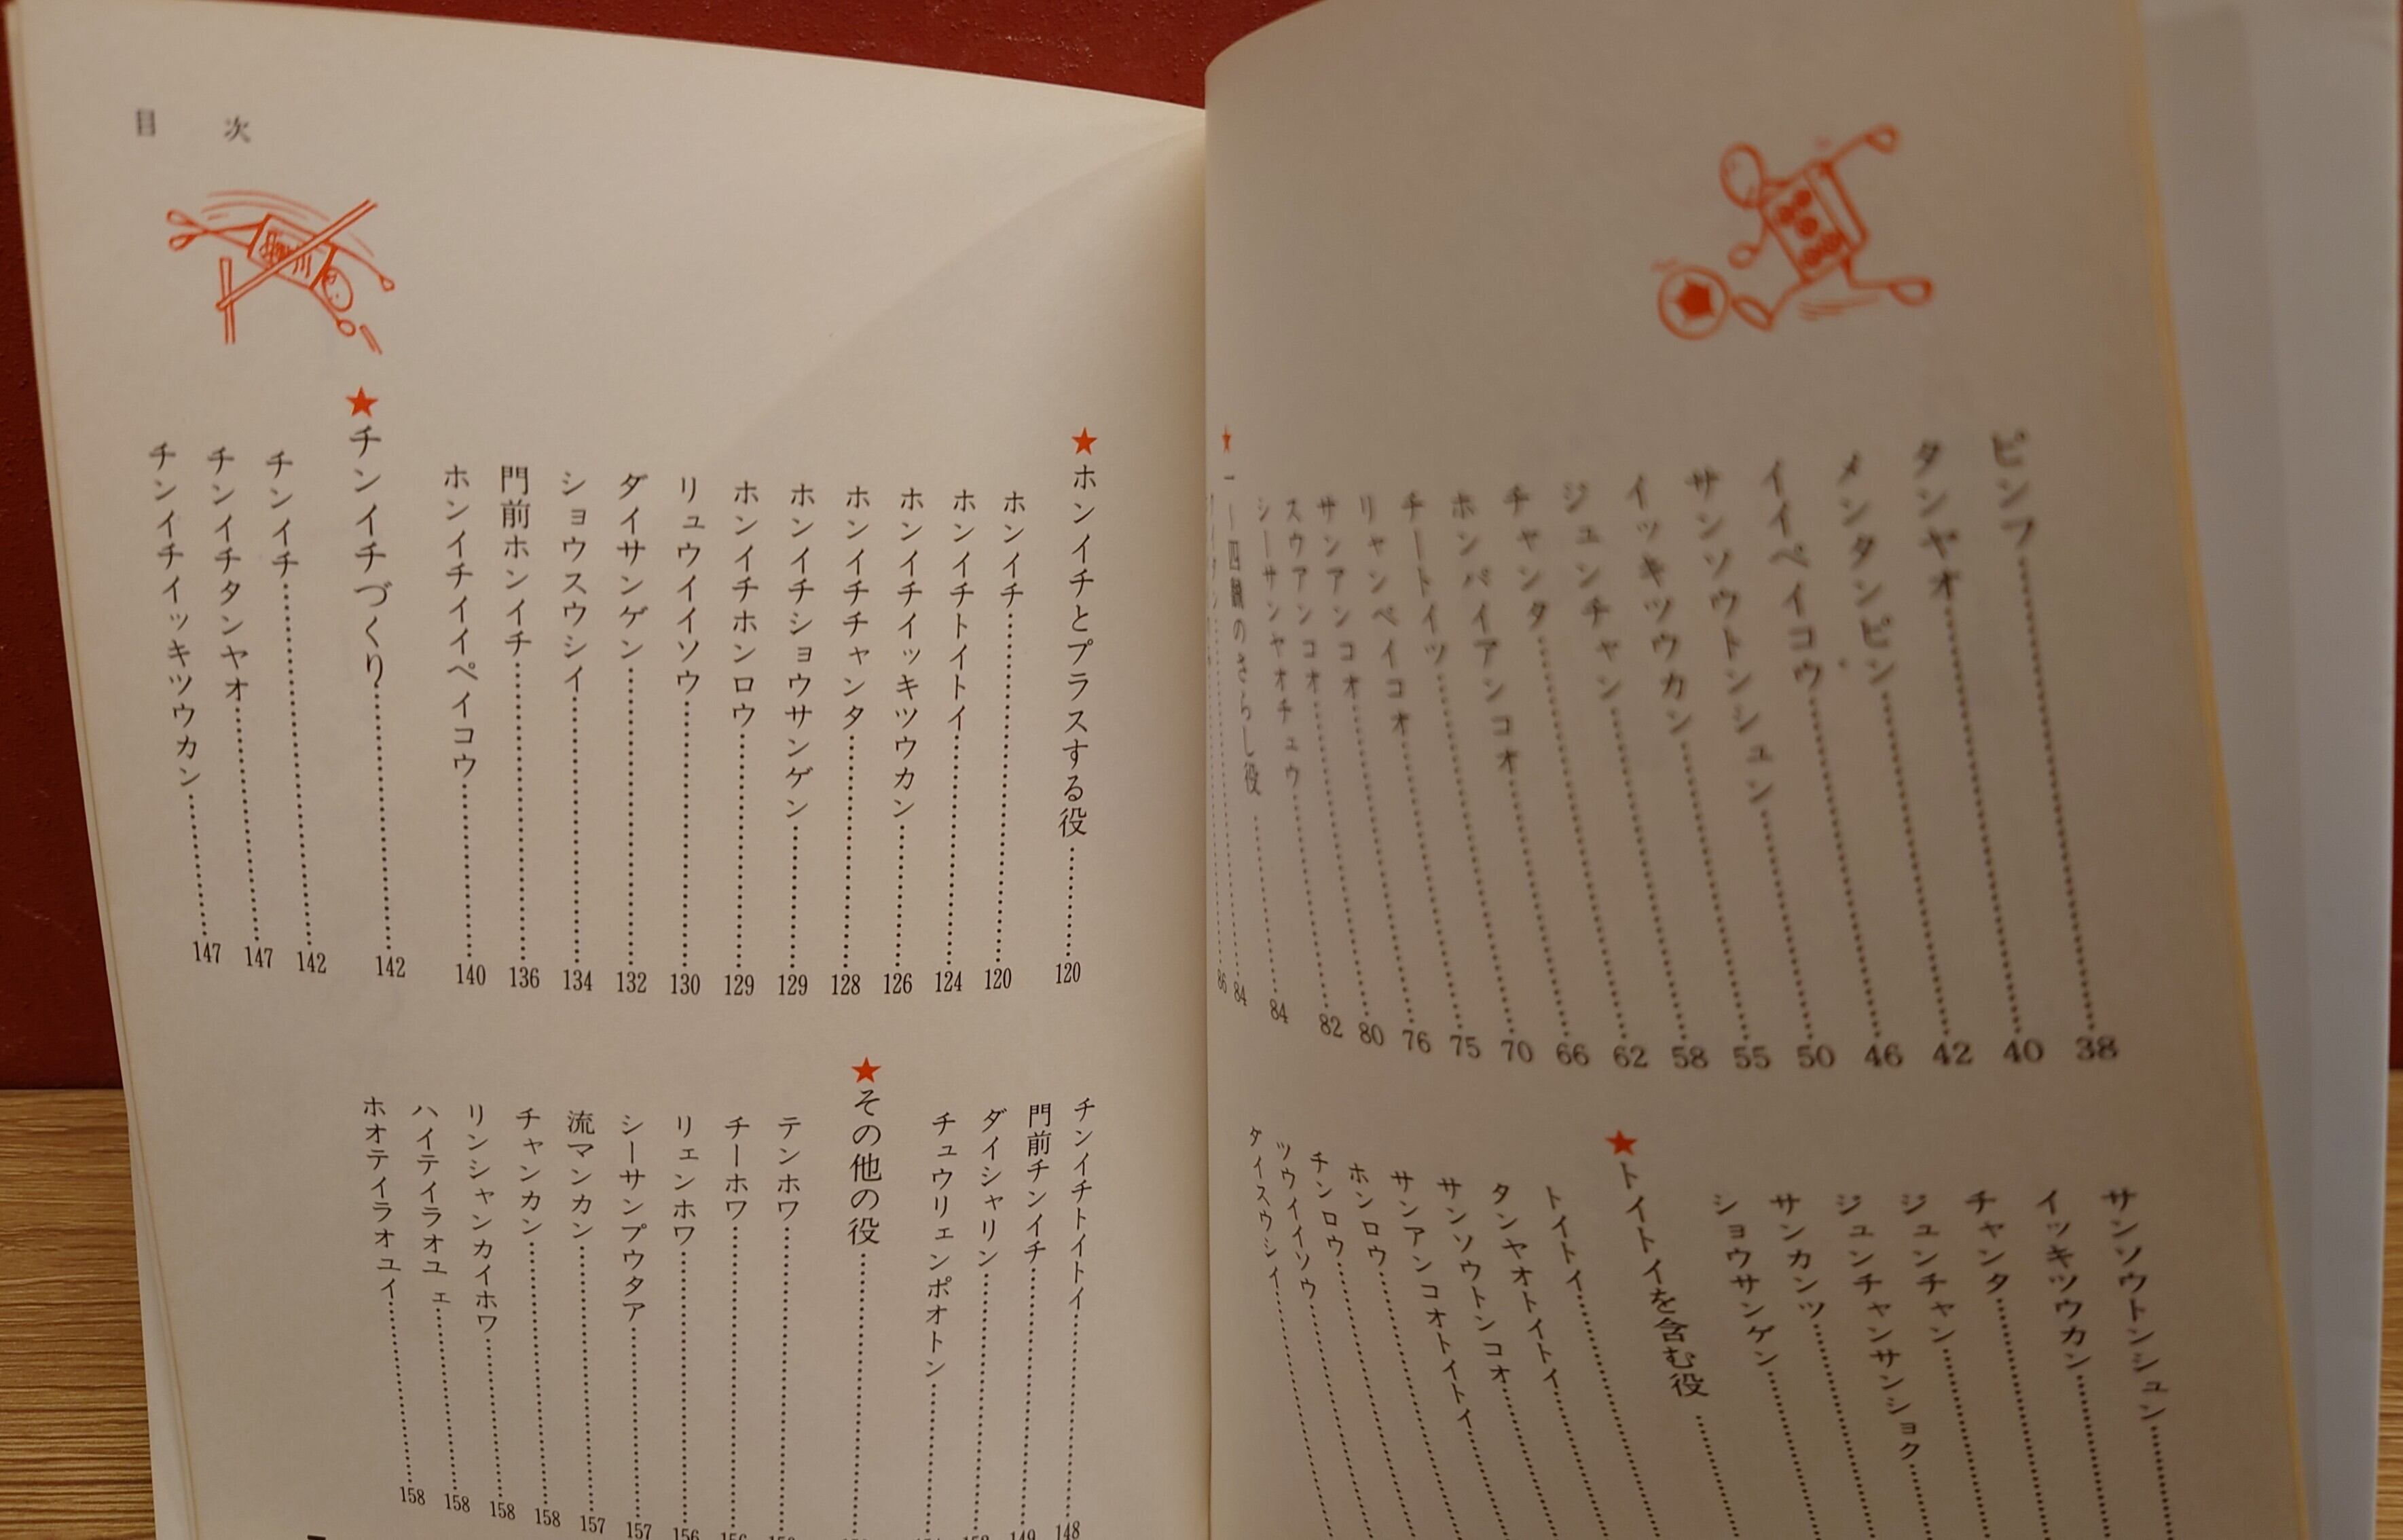 ピンフ……38
タンヤオ……40
メンタンピン……42
イイペイコウ……46
サンソウトンシュン……50
イッキツウカン……55
ジュンチャン……58
チャンタ……62
ホンパイアンコオ……66
チートイツ……70
リャンペイコオ……75
サンアンコオ……76
スウアンコオ……80
シーサンヤオチュウ……82
★一ー四飜のさらし役……84
84
86
サンソウトンシュン……
イッキツウカン……
チャンタ……
ジュンチャン……
ジュンチャンサンショク……
サンカンツ……
ショウサンゲン……
★トイトイを含む役……
トイトイ……
タンヤオトイトイ……
サンソウトンコオ……
サンアンコオトイトイ……
ホンロウ……
チンロウ……
ツウイイソウ……
ダイスウシイ……
目次
★ホンイチとプラスする役……120
ホンイチ……120
ホンイチトイトイ……124
ホンイチイッキツウカン……126
ホンイチチャンタ……128
ホンイチショウサンゲン……129
ホンイチホンロウ……129
リュウイイソウ……130
ダイサンゲン……132
ショウスウシイ……134
門前ホンイチ……136
ホンイチイイペイコウ……140
★チンイチづくり……142
チンイチ……142
チンイチタンヤオ……147
チンイチイッキツウカン……147
チンイチトイトイ……148
門前チンイチ……149
ダイシャリン……
チュウリェンポオトン……
★その他の役……
テンホワ……
チーホワ……156
リェンホワ……156
シーサンプウタア……157
流マンカン……157
チャンカン……158
リンシャンカイホワ……158
ハイテイラオユェ……158
ホオテイラオユイ……158